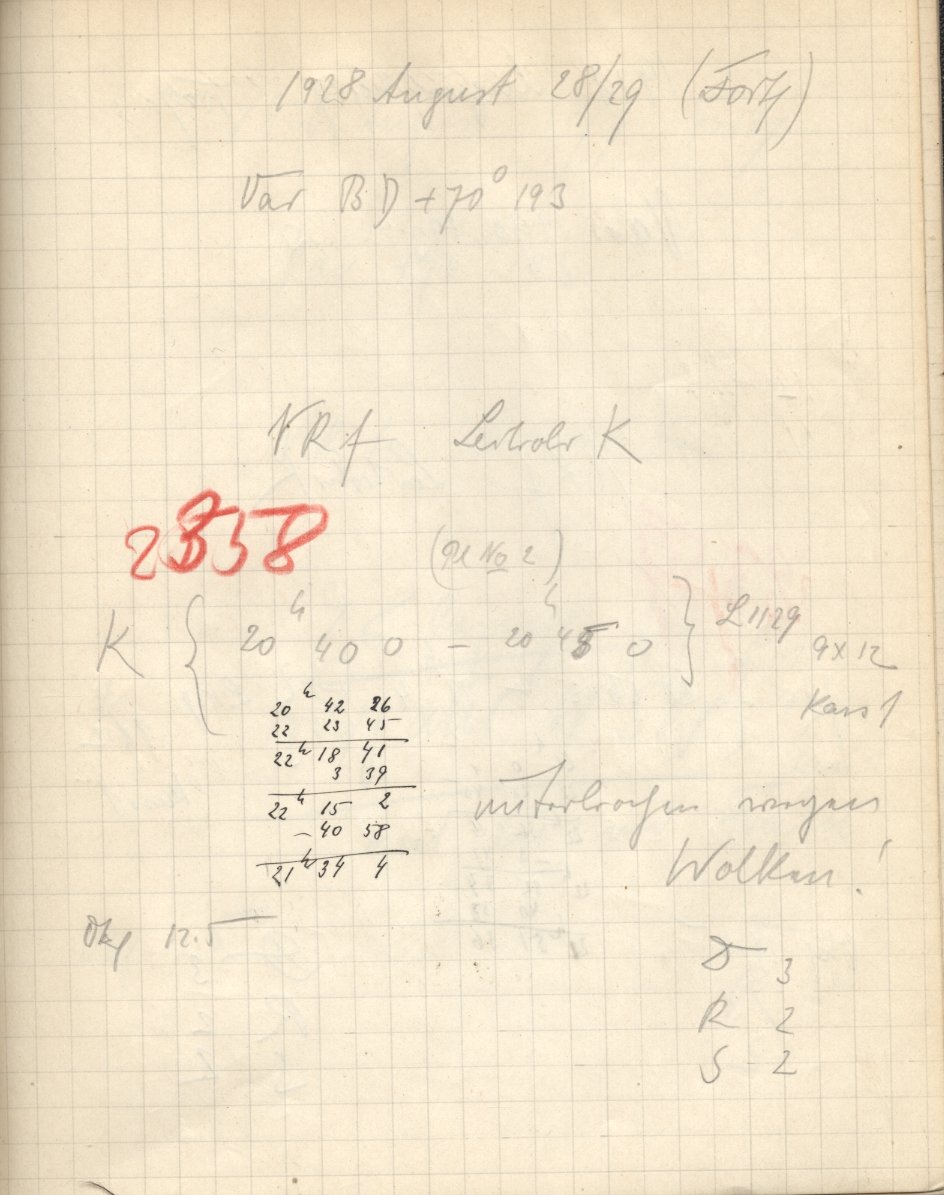 1928 August 28/29 (Forts)
Var BD +70° 193
Leitrohr K
2358
(Pl No 2)
K { 20h 40 0 – 20h 45 0 } L1129
9x12
Kass 1
20h 42 26
22 23 45
22h 18 41
3 39
22h 15 2
– 40 58
21h 34 4
unterbrochen wegen
Wolken!
12.5
D 3
R 2
S 2